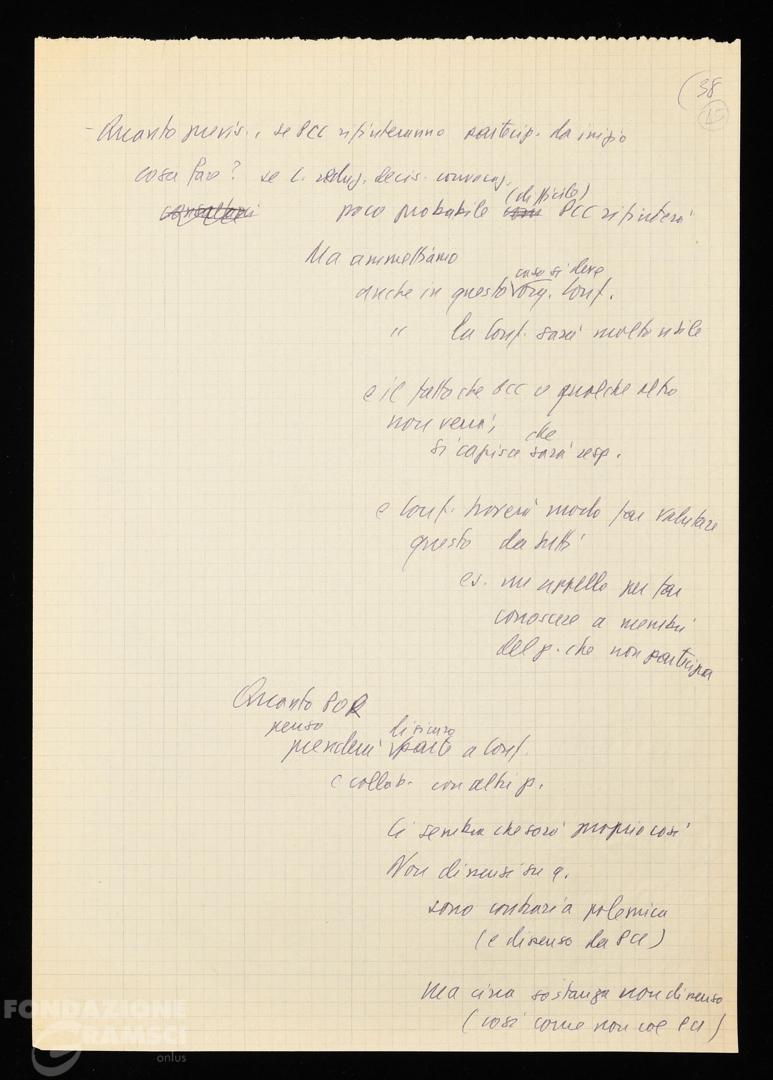 (38
15
- Quanto previs., se PCC rifiuteranno partecip. da inizio
cosa fare? se c. redaz. decis. convocaz.
consultarci poco probabile (difficile) PCC rifiuterà
Ma ammettiamo
anche in questo caso si deve org. Conf.
" la Conf. sarà molto utile
e il fatto che PCC o qualche altro
non verrà,
si capisce che sarà resp.
e Conf. troverà modo far valutare
questo da tutti
es. un appello per far
conoscere a membri
del p. che non partecipa
Quanto POR
penso
prenderà di sicuro parte a Conf.
e collab. con altri p.
Ci sembra che sarà proprio così
Non dissensi su q.
sono contrari a polemica
(e dissenso da PCI)
Ma circa sostanza non dissenso
(così come non col PCI)
FONDAZIONE
GRAMSCI
onlus